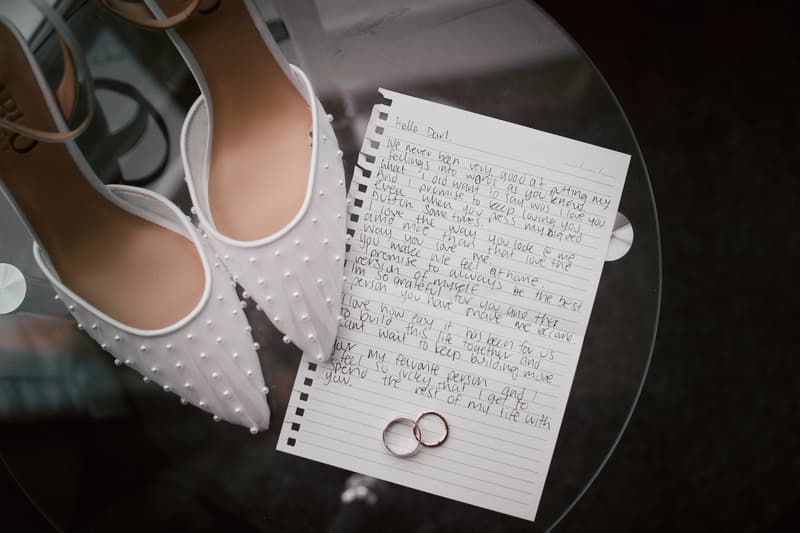 Hello Darl,
Ive never been very good at putting my
feelings into words as you know.
What I did want to say was I love you
And I promise to keep loving you
even when you press my big red
button sometimes.
I love the way you look @ me
and more than that love the
way you love me.
You make me feel at home.
I promise to always be the best
version of myself.
Im so grateful for you and that
person you have made me become.
I love how easy it has been for us
to build this life together and
cant wait to keep building more
Your my favorite person and I
feel so lucky that I get to
spend the rest of my life with
you.